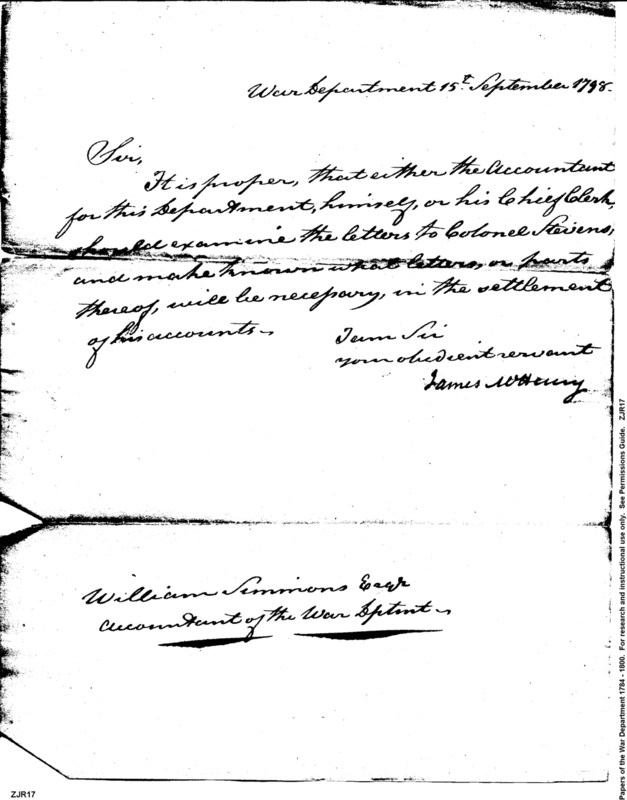 War Department 15.t September 1798.
Sir,
It is proper, that either the Accountant
for this Department, himself, or his Chief Clerk,
should examine the letters to Colonel Stevens,
and make known what letters, or parts
thereof, will be necessary, in the settlement
of his accounts.
I am Sir
your obedient servant
James McHenry
William Simmons Esqr
Accountant of the War Dptmt
Papers of the War Department 1784 - 1800. For research and instructional use only. See Permissions Guide. ZJR17
ZJR17